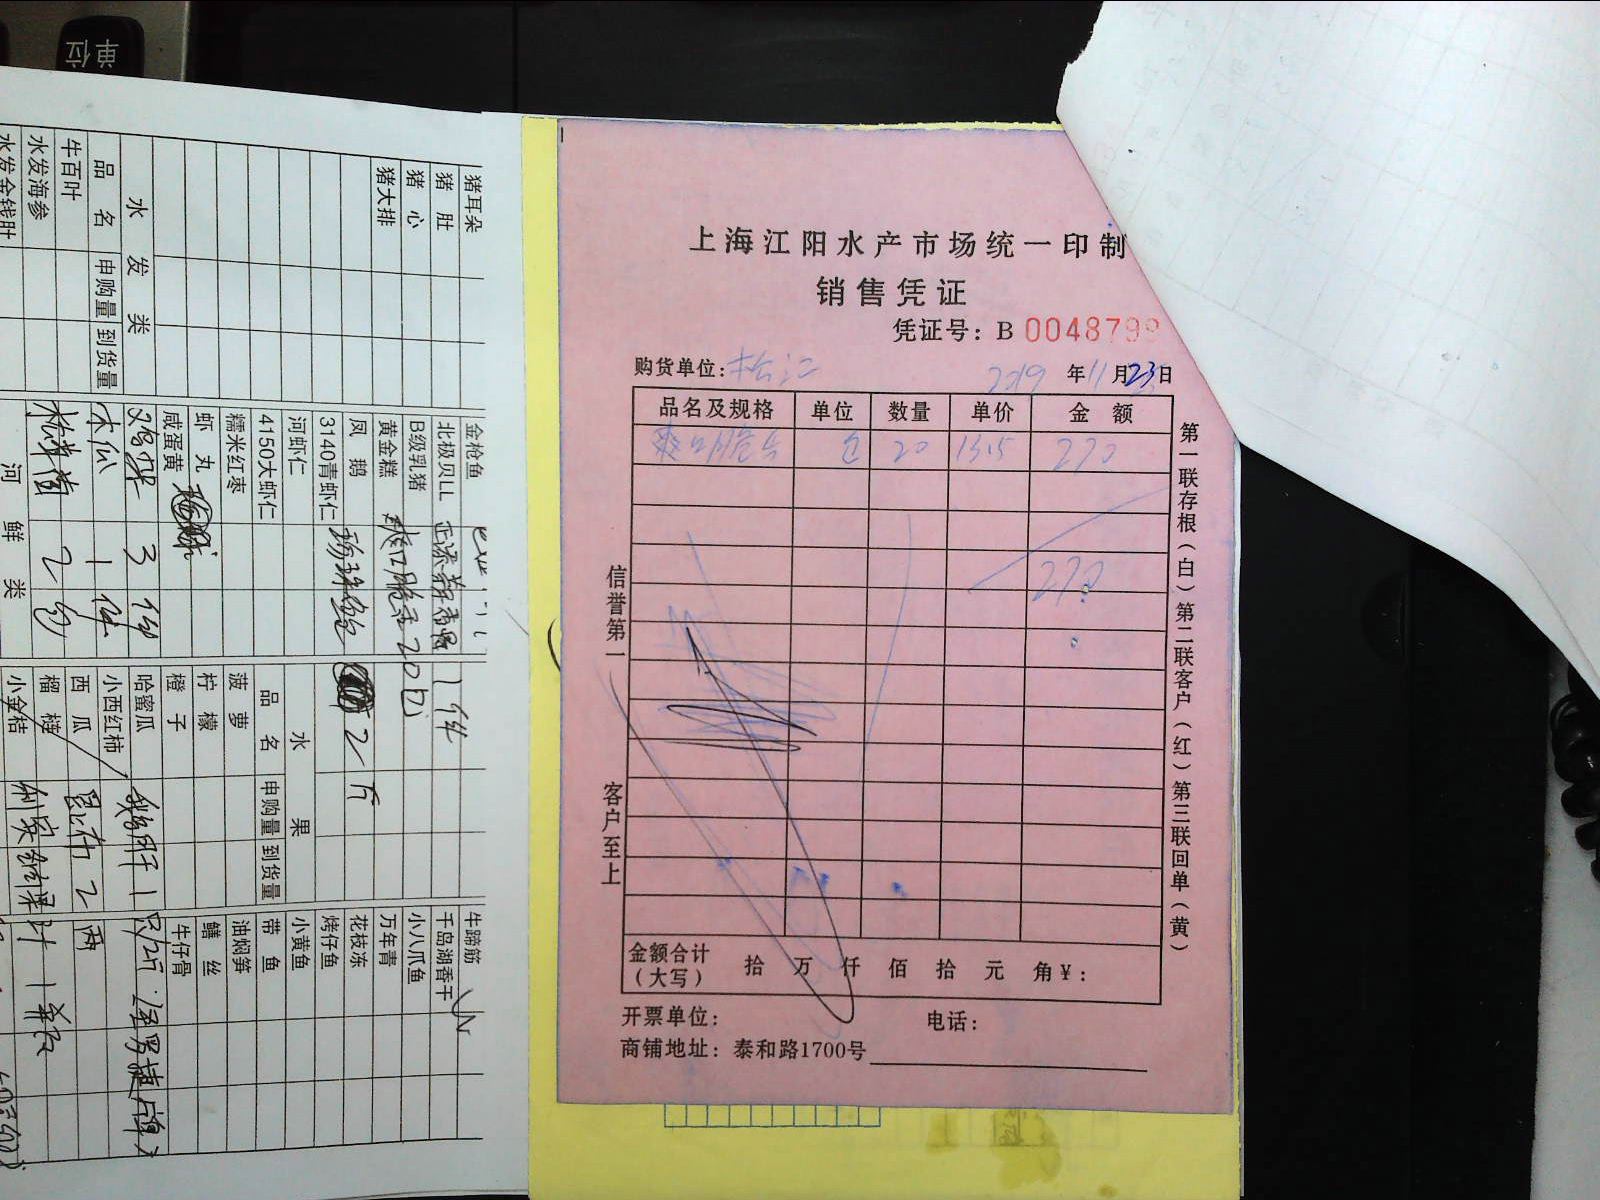 单位
上海江阳水产市场统一印制
销售凭证
凭证号: B 0048799
购货单位: 松江 2019 年 11 月 23 日
品名及规格 单位 数量 单价 金额
包 20 13.5 270
270
信誉第一
客户至上
第一联存根(白)第二联客户(红)第三联回单(黄)
金额合计(大写) 拾 万 仟 佰 拾 元 角 ¥:
开票单位: 电话:
商铺地址: 泰和路1700号
猪耳朵
猪肚
猪心
猪大排
水发类
品名 申购量 到货量
牛百叶
水发海参
水发金钱肚
金枪鱼
北极贝LL 1件
B级乳猪
黄金糕 20包
凤鹅
3140青虾仁 2斤
河虾仁
4150大虾仁
糯米红枣
虾丸
咸蛋黄
3
木瓜 1
2
河鲜类
水果
品名 申购量 到货量
菠萝
柠檬
橙子
哈蜜瓜
小西红柿
西瓜 昆布 2两
榴梿
小金桔
牛蹄筋
千岛湖香干
小八爪鱼
万年青
花枝冻
烤仔鱼
小黄鱼
带鱼
油焖笋
鳝丝
牛仔骨